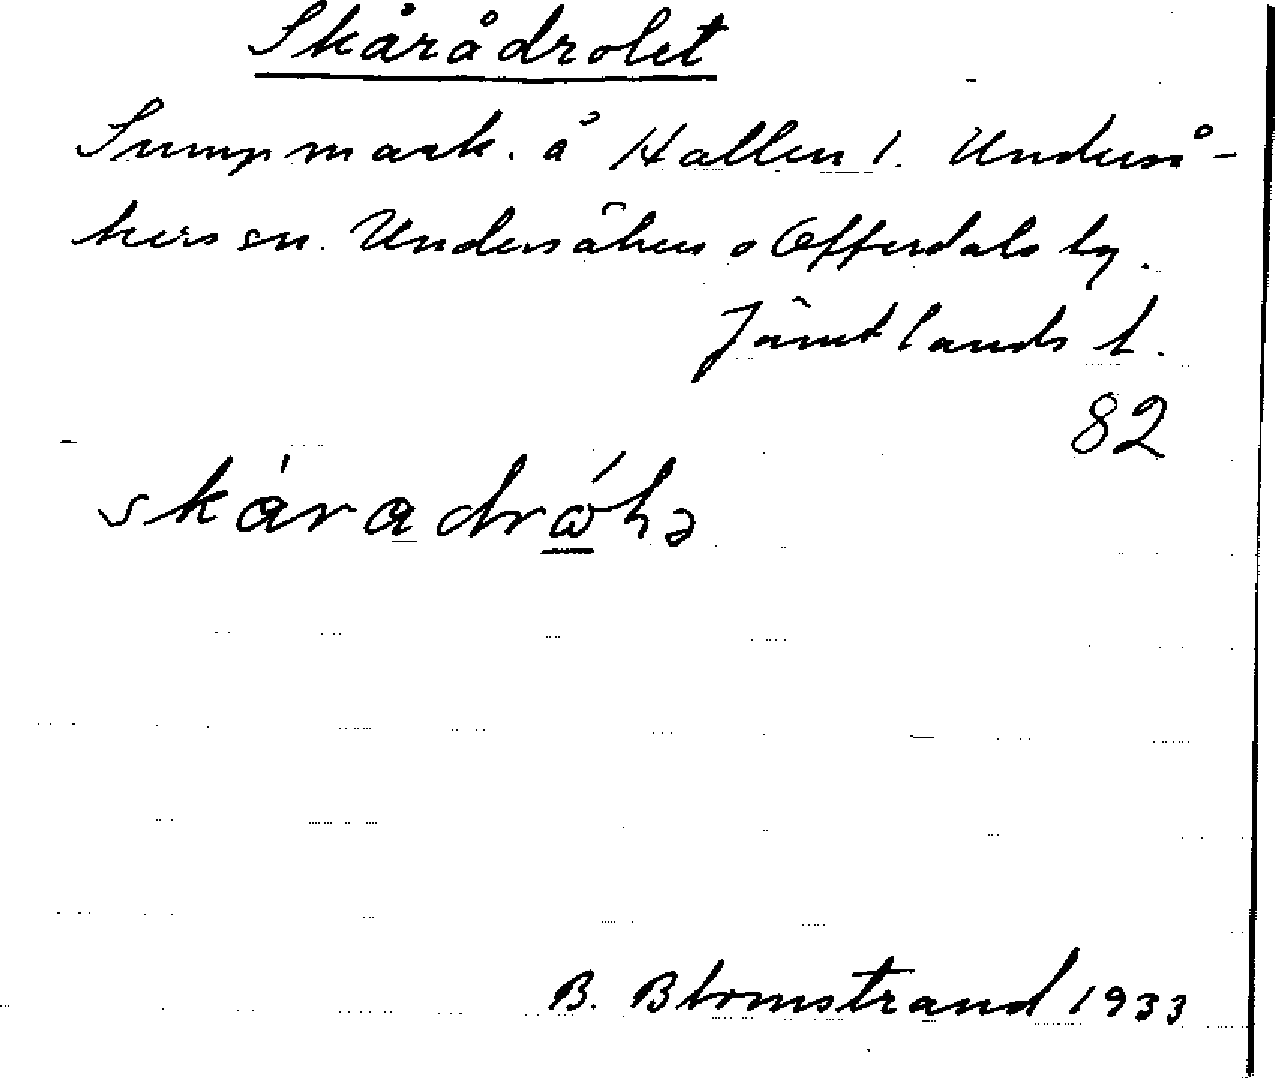 Skårådrolet
Sumpmark. å Hallen 1. Underså-
kers sn. Undersåkers o Offerdals tg.
Jämtlands l.
82
skáradrώɬə
B. Blomstrand 1933